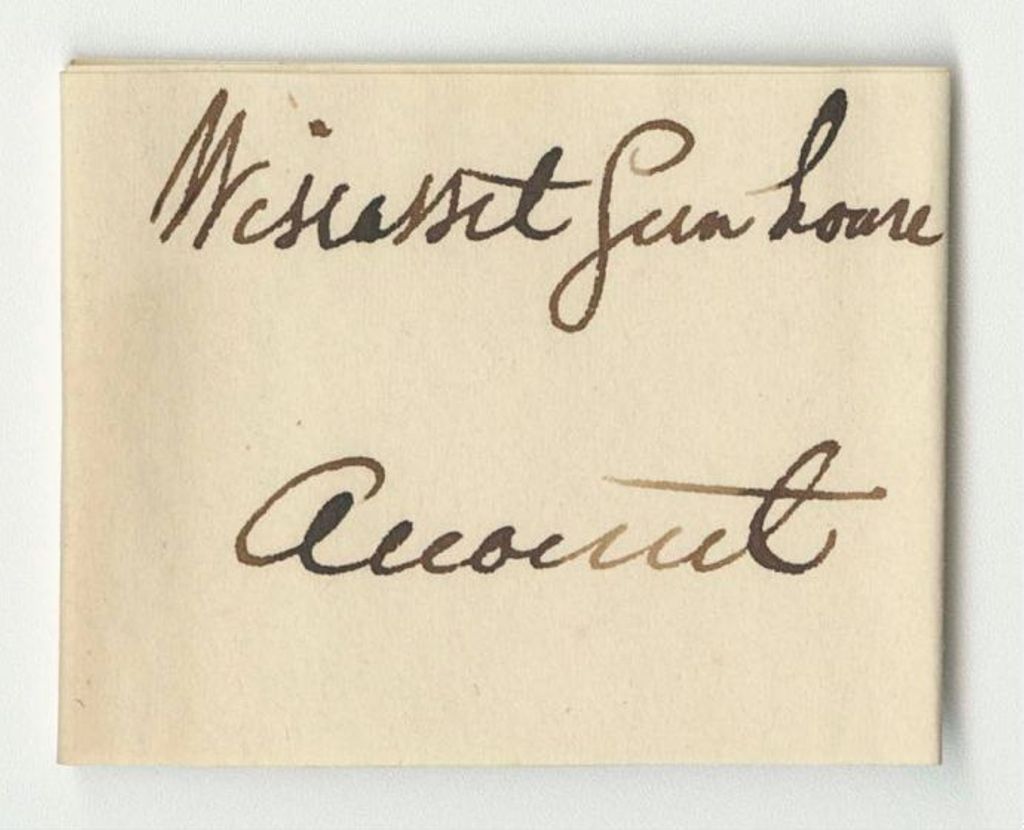 Wiscasset Gun house
Account